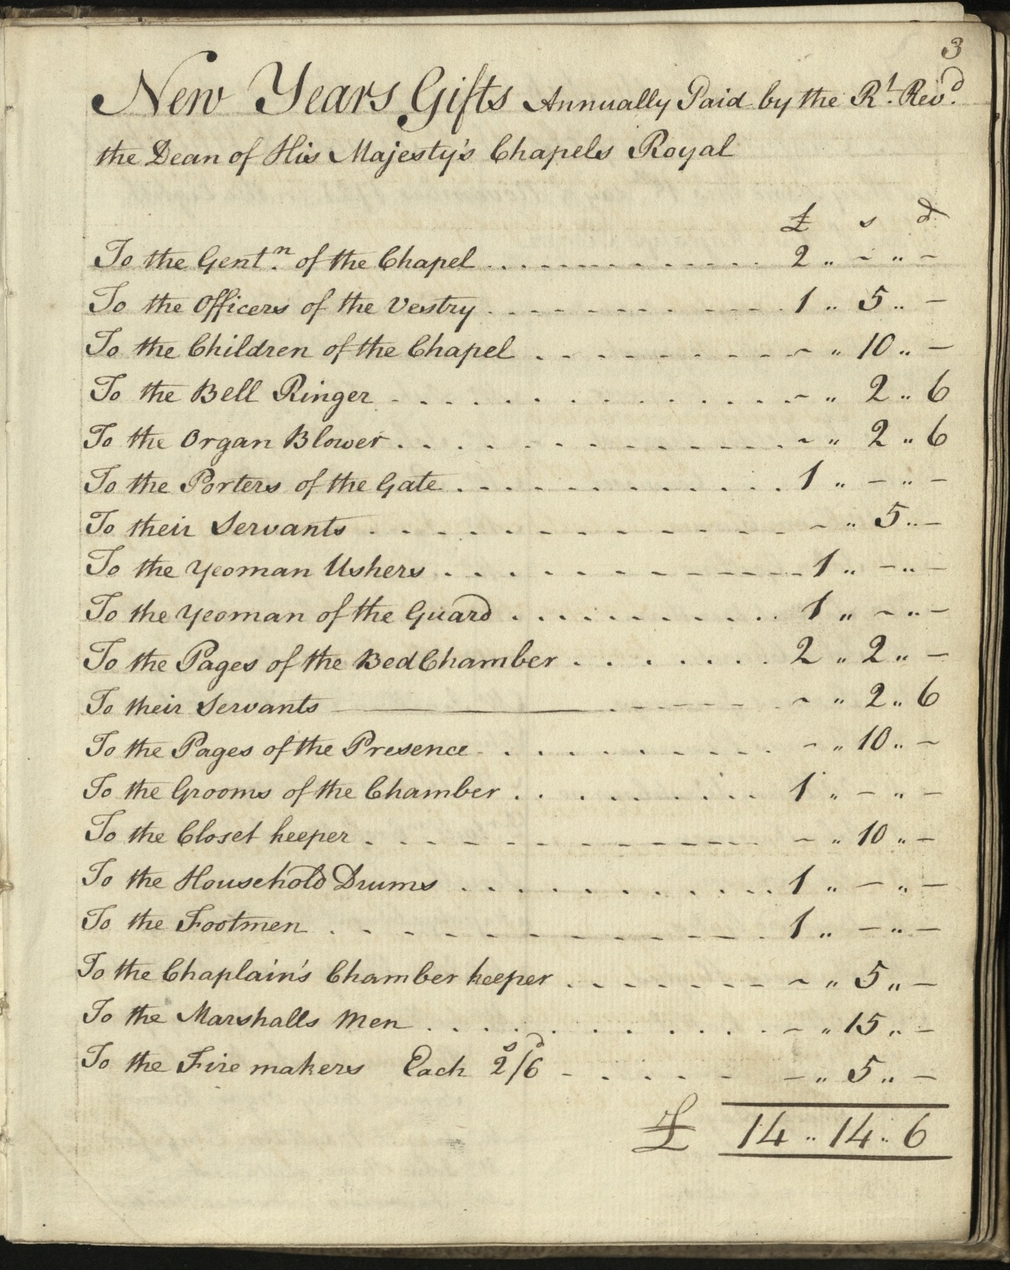 3
New Years Gifts Annually Paid by the Rt. Revd.
the Dean of His Majesty's Chapels Royal
£ s d
To the Gentn. of the Chapel .............. 2 ,, - ,, -
To the Officers of the Vestry .............. 1 ,, 5 ,, -
To the Children of the Chapel .............. - ,, 10 ,, -
To the Bell Ringer .............. - ,, 2 ,, 6
To the Organ Blower .............. - ,, 2 ,, 6
To the Porters of the Gate .............. 1 ,, - ,, -
To their Servants .............. - ,, 5 ,, -
To the Yeoman Ushers .............. 1 ,, - ,, -
To the Yeoman of the Guard .............. 1 ,, - ,, -
To the Pages of the BedChamber ....... 2 ,, 2 ,, -
To their Servants .............. - ,, 2 ,, 6
To the Pages of the Presence .............. - ,, 10 ,, -
To the Grooms of the Chamber .............. 1 ,, - ,, -
To the Closet keeper .............. - ,, 10 ,, -
To the Household Drums .............. 1 ,, - ,, -
To the Footmen .............. 1 ,, - ,, -
To the Chaplain's Chamber keeper ........ - ,, 5 ,, -
To the Marshalls Men .............. - ,, 15 ,, -
To the Fire makers Each 2s/6d ...... - ,, 5 ,, -
£ 14 ,, 14 ,, 6